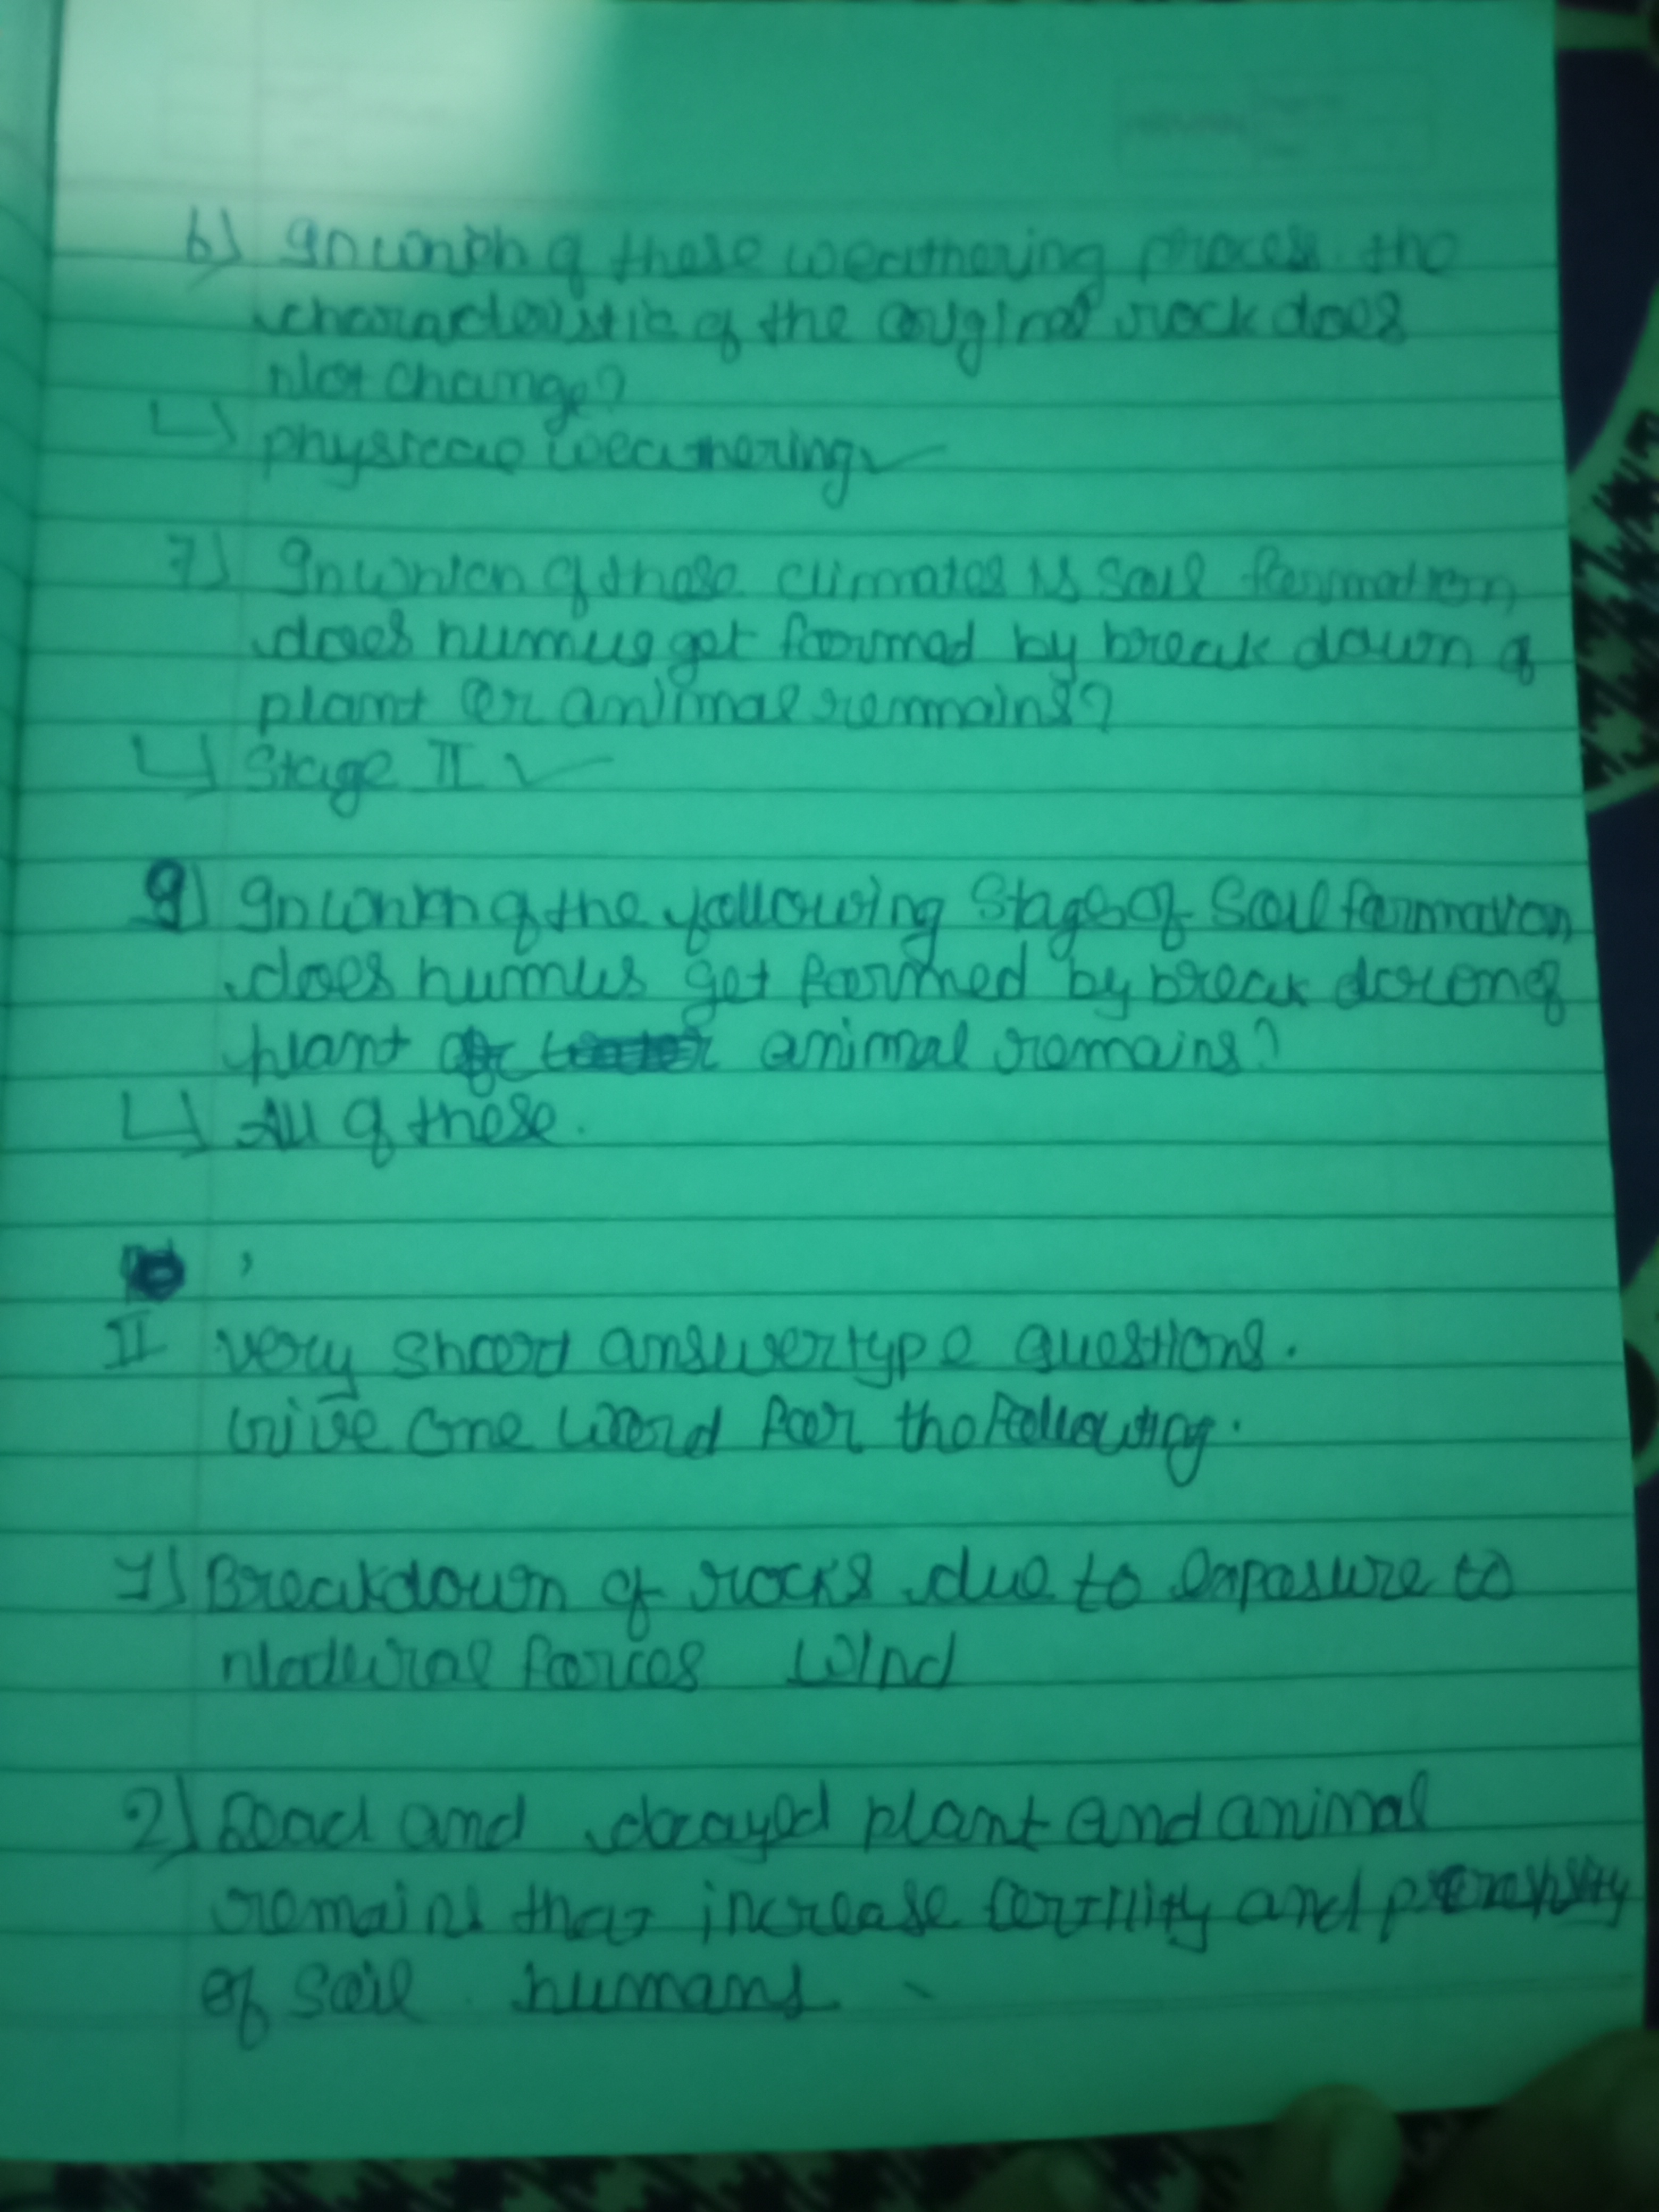 6) In which of these weathering process the
characteristic of the original rock does
Not change?
physical weathering
7) In which of these climates is Soil formation
does humus get formed by break down of
plant or animal remains?
Stage II
9) In which of the following Stage of Soil formation
does humus get formed by break down of
plant or animal remains?
All of these.
II very short answer type questions.
Give one word for the following.
1) Breakdown of rocks due to exposure to
Natural forces Wind
2) Dead and decayed plant and animal
remains that increase fertility and
of soil humans